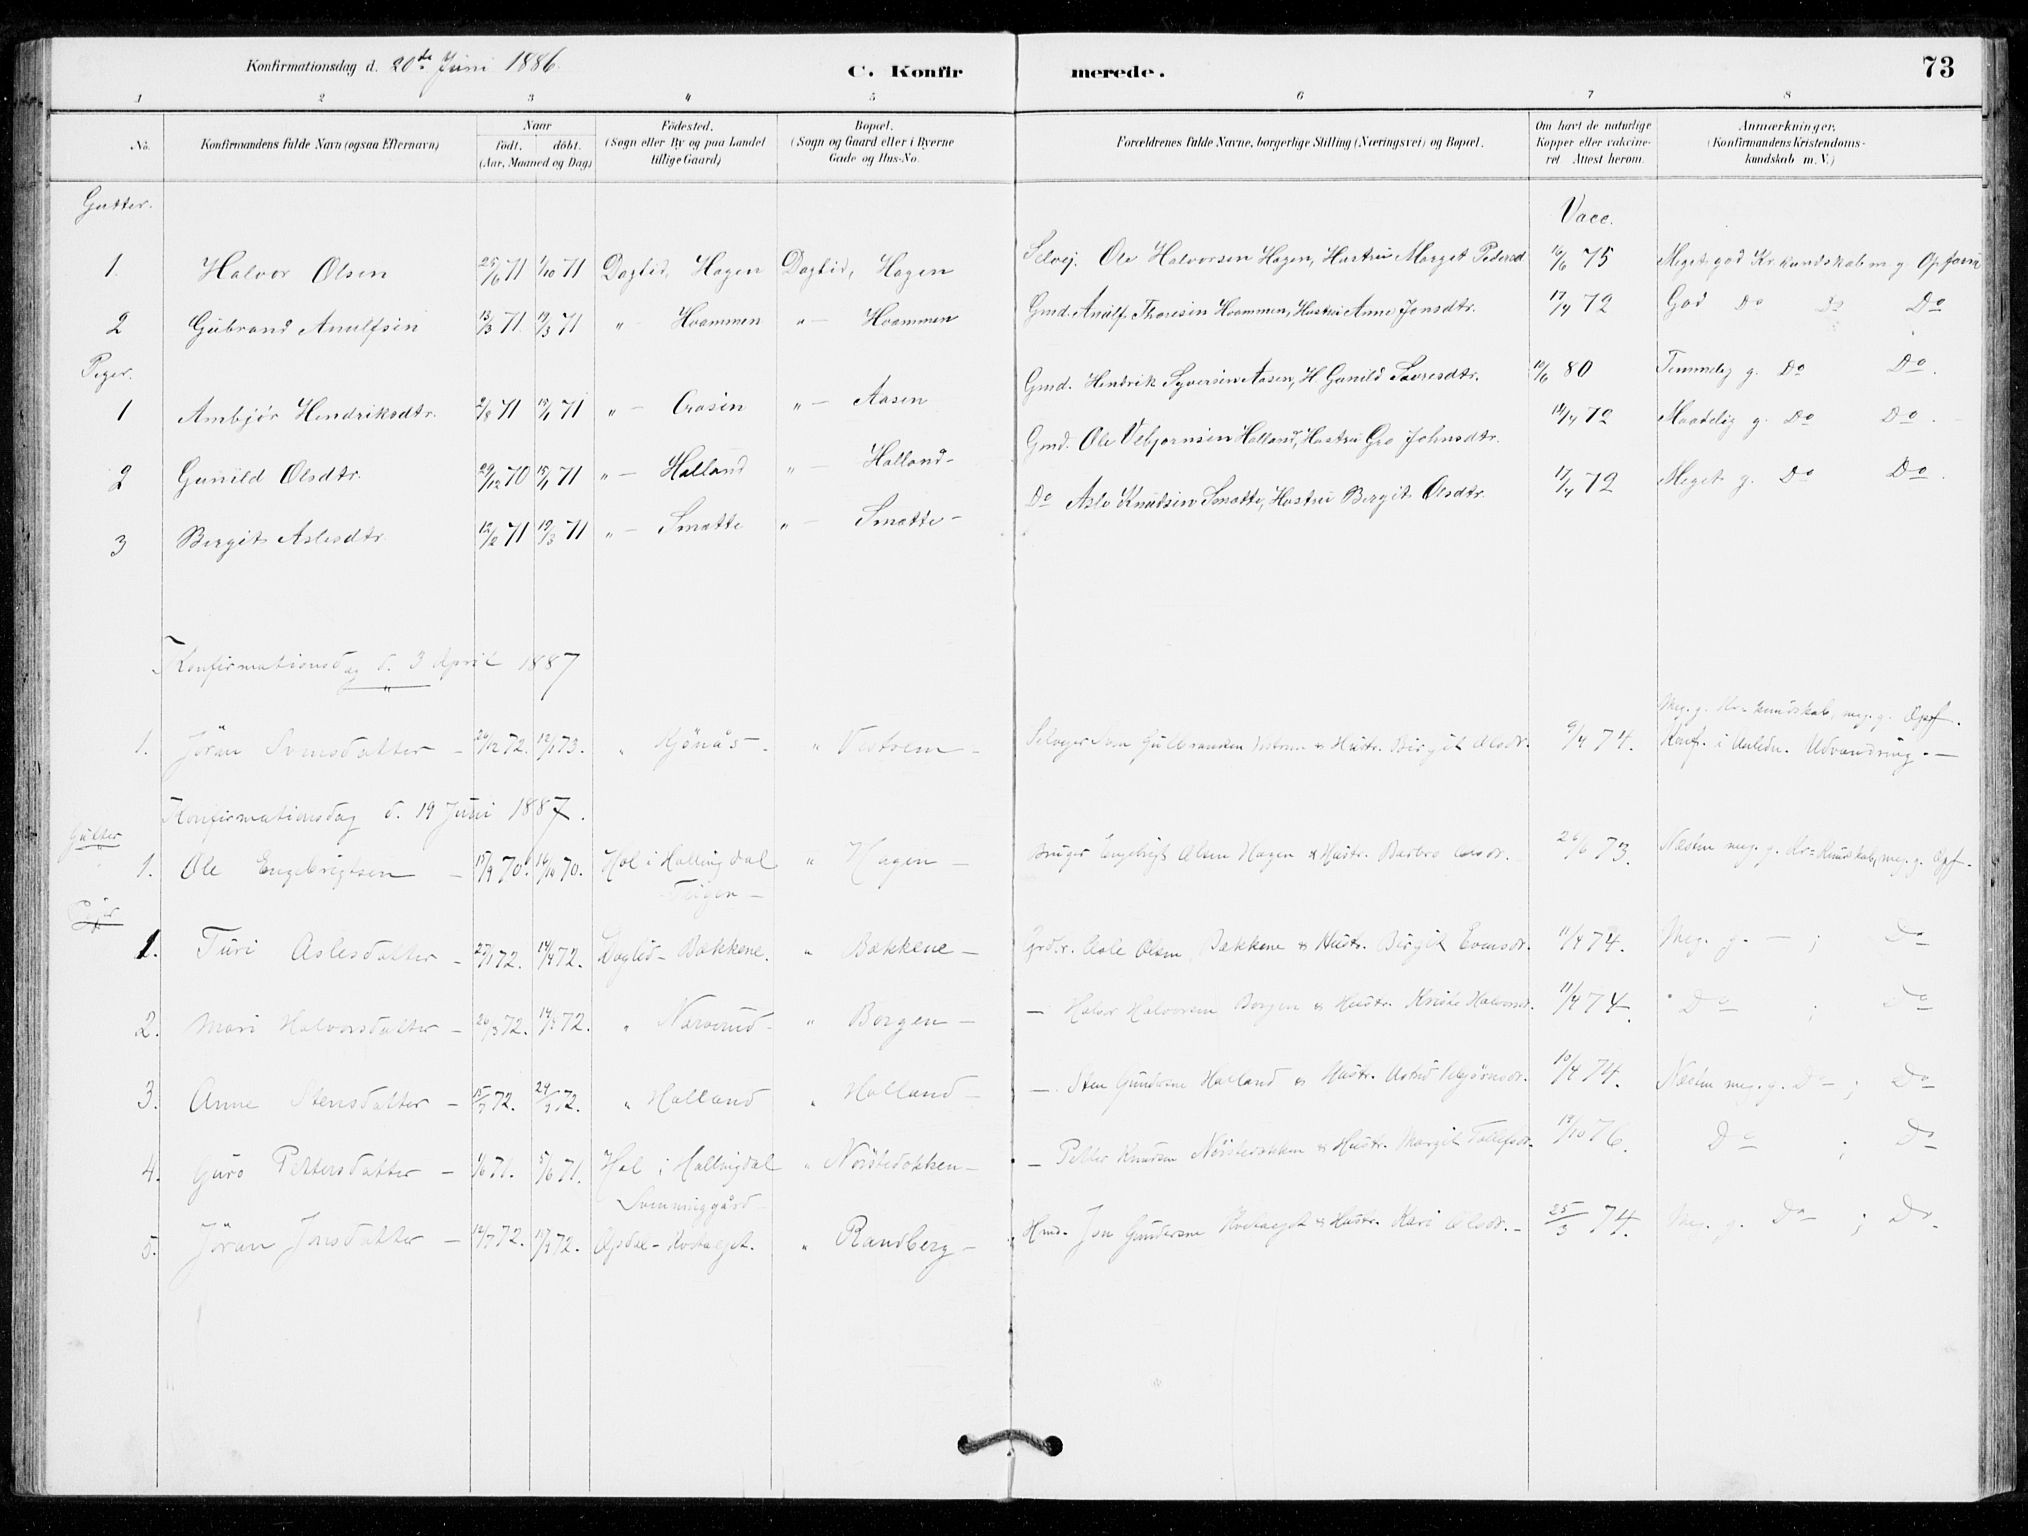 Konfirmationsdag d. 20de Juni 1886.
C. Konfirmerede.
73
1 2 3 4 5 6 7 8
No.
Konfirmandens fulde Navn (ogsaa Efternavn)
Naar
födt. döbt.
(Aar, Maaned og Dag)
Födested.
(Sogn eller By og paa Landet
tillige Gaard)
Bopæl.
(Sogn og Gaard eller i Byerne
Gade og Hus-No.
Forældrenes fulde Navne, borgerlige Stilling (Næringsvei) og Bopæl.
Om havt de naturlige
Kopper eller vakcine-
ret Attest herom.
Anmærkninger.
(Konfirmandens Kristendoms-
kundskab m. V.)
Gutter.
Vacc.
1. Halvor Olsen 25/6 71 1/10 71 Dagtid, Hagen Dagtid, Hagen Selvej. Ole Halvorsen Hagen, Hustru Marget Pedersd 16/6 75 Meget god Kr. kundskab m. g. Opførs
2 Gubrand Anulfsen 13/3 71. 19/3 71 " — Hoammen " — Hoammen Gmd. Anulf Thoresen Hoammen, Hustru Anne Jonsdtr. 17/4 72 God Do Do Do
Piger.
1 Ambjør Hendriksdtr. 2/8 71 71 " — " — Aasen Gmd. Hendrik Syversen Aasen, H. Gunild Sevresdtr. 10/6 80 Temmelig g. Do Do.
2 Gunild Olsdtr. 29/12 70 15/1 71 " — Halland " — Halland - Gmd. Ole Vebjornsen Halland, Hustru Gro Johnsdtr. 18/4 72 Maadelig g. Do Do.
3 Bergit Aslesdtr. 12/2 71 19/3 71 " — Smøtte " — Smøtte - Do Asle Knudsen Smøtte, Hustru Bergit Olsdtr. 17/4 72 Meget g. Do Do.
Konfirmationsdag d. 3 April 1887
1. Jöran Svensdatter - 26/12 72. 12/1 73. " - " Vestrem - Selveger Sven Gulbrandsen & Hustr. Birgit Olsdr. 9/4 74. Meg. g. Kr-kundskab, meg. g. Opf.
Konf. i Anledn. Udvandring. —
Konfirmationsdag d. 19 Juni 1887.
Gutter
1. Ole Engebrigtsen - 15/9 70. 16/10 70. Hol i Hallingdal " Hagen - Bruger Engebrigt Olsen Hagen & Hustr. Barbro Olsdr. - 26/6 73. Næsten meg. g. Kr-Kundskab, meg. g. Opf.
Piger
1. Turi Aslesdatter - 27/1 72. 14/4 72. Dagtid - Bækkene. " Bækkene - Asle Olsen Bækkene & Hustr. Birgit Evensdr. 11/4 74. Meg. g. — ; Do
2. Mari Halvorsdatter - 26/3 72. 14/4 72. " Narverud - " Borgen - — Halvor Halvorsen Borgen & Hustr. Kristi Halvorsdr. 11/4 74. Do ; Do
3. Anne Stensdatter - 15/3 72. 24/3 72. " Halland " Halland - — Sten Gundersen Halland & Hustr. Astrid Vebjörnsdr. 10/4 74. Næsten meg. g. Do ; Do
4. Guro Pettersdatter - 1/6 71. 5/6 71. Hol i Hallingdal " - — Petter Knudsen & Hustr. Margit Tollefsdr. 19/10 76. Do ; Do
Svenninggård
5. Jöran Jonsdatter - 12/7 72. 72. Opdal - " Randberg - Hmd. Jon Gundersen & Hustr. Kari Olsdr. - 25/3 74. Meg. g. Do ; Do.